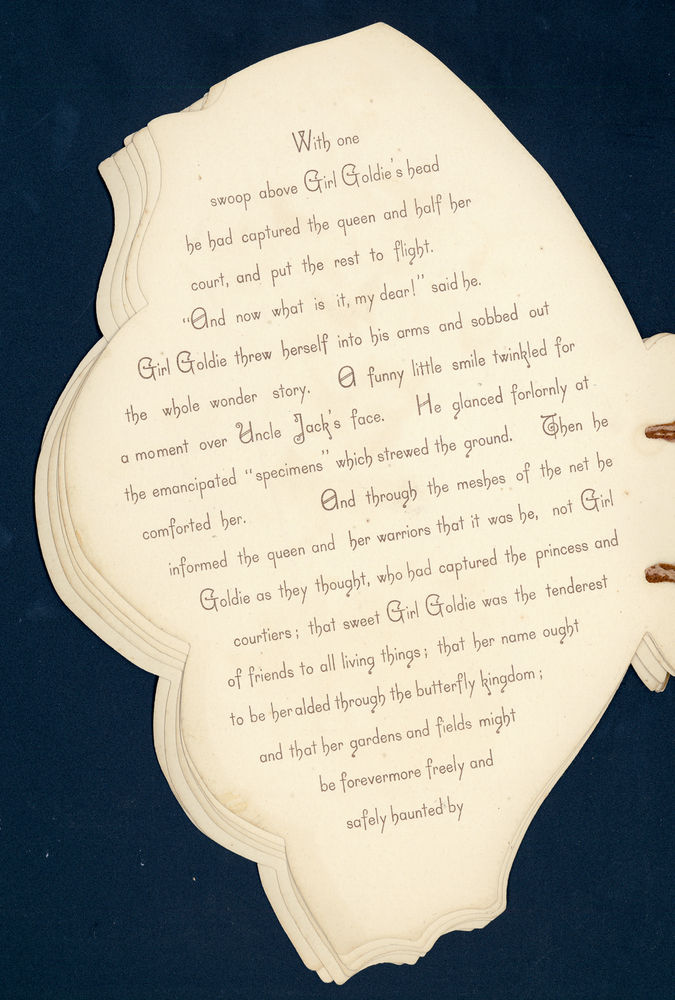 With one
swoop above Girl Goldie's head
he had captured the queen and half her
court, and put the rest to flight.
"And now what is it, my dear!" said he.
Girl Goldie threw herself into his arms and sobbed out
the whole wonder story. A funny little smile twinkled for
a moment over Uncle Jack's face. He glanced forlornly at
the emancipated "specimens" which strewed the ground. Then he
comforted her. And through the meshes of the net he
informed the queen and her warriors that it was he, not Girl
Goldie as they thought, who had captured the princess and
courtiers; that sweet Girl Goldie was the tenderest
of friends to all living things; that her name ought
to be heralded through the butterfly kingdom;
and that her gardens and fields might
be forevermore freely and
safely haunted by